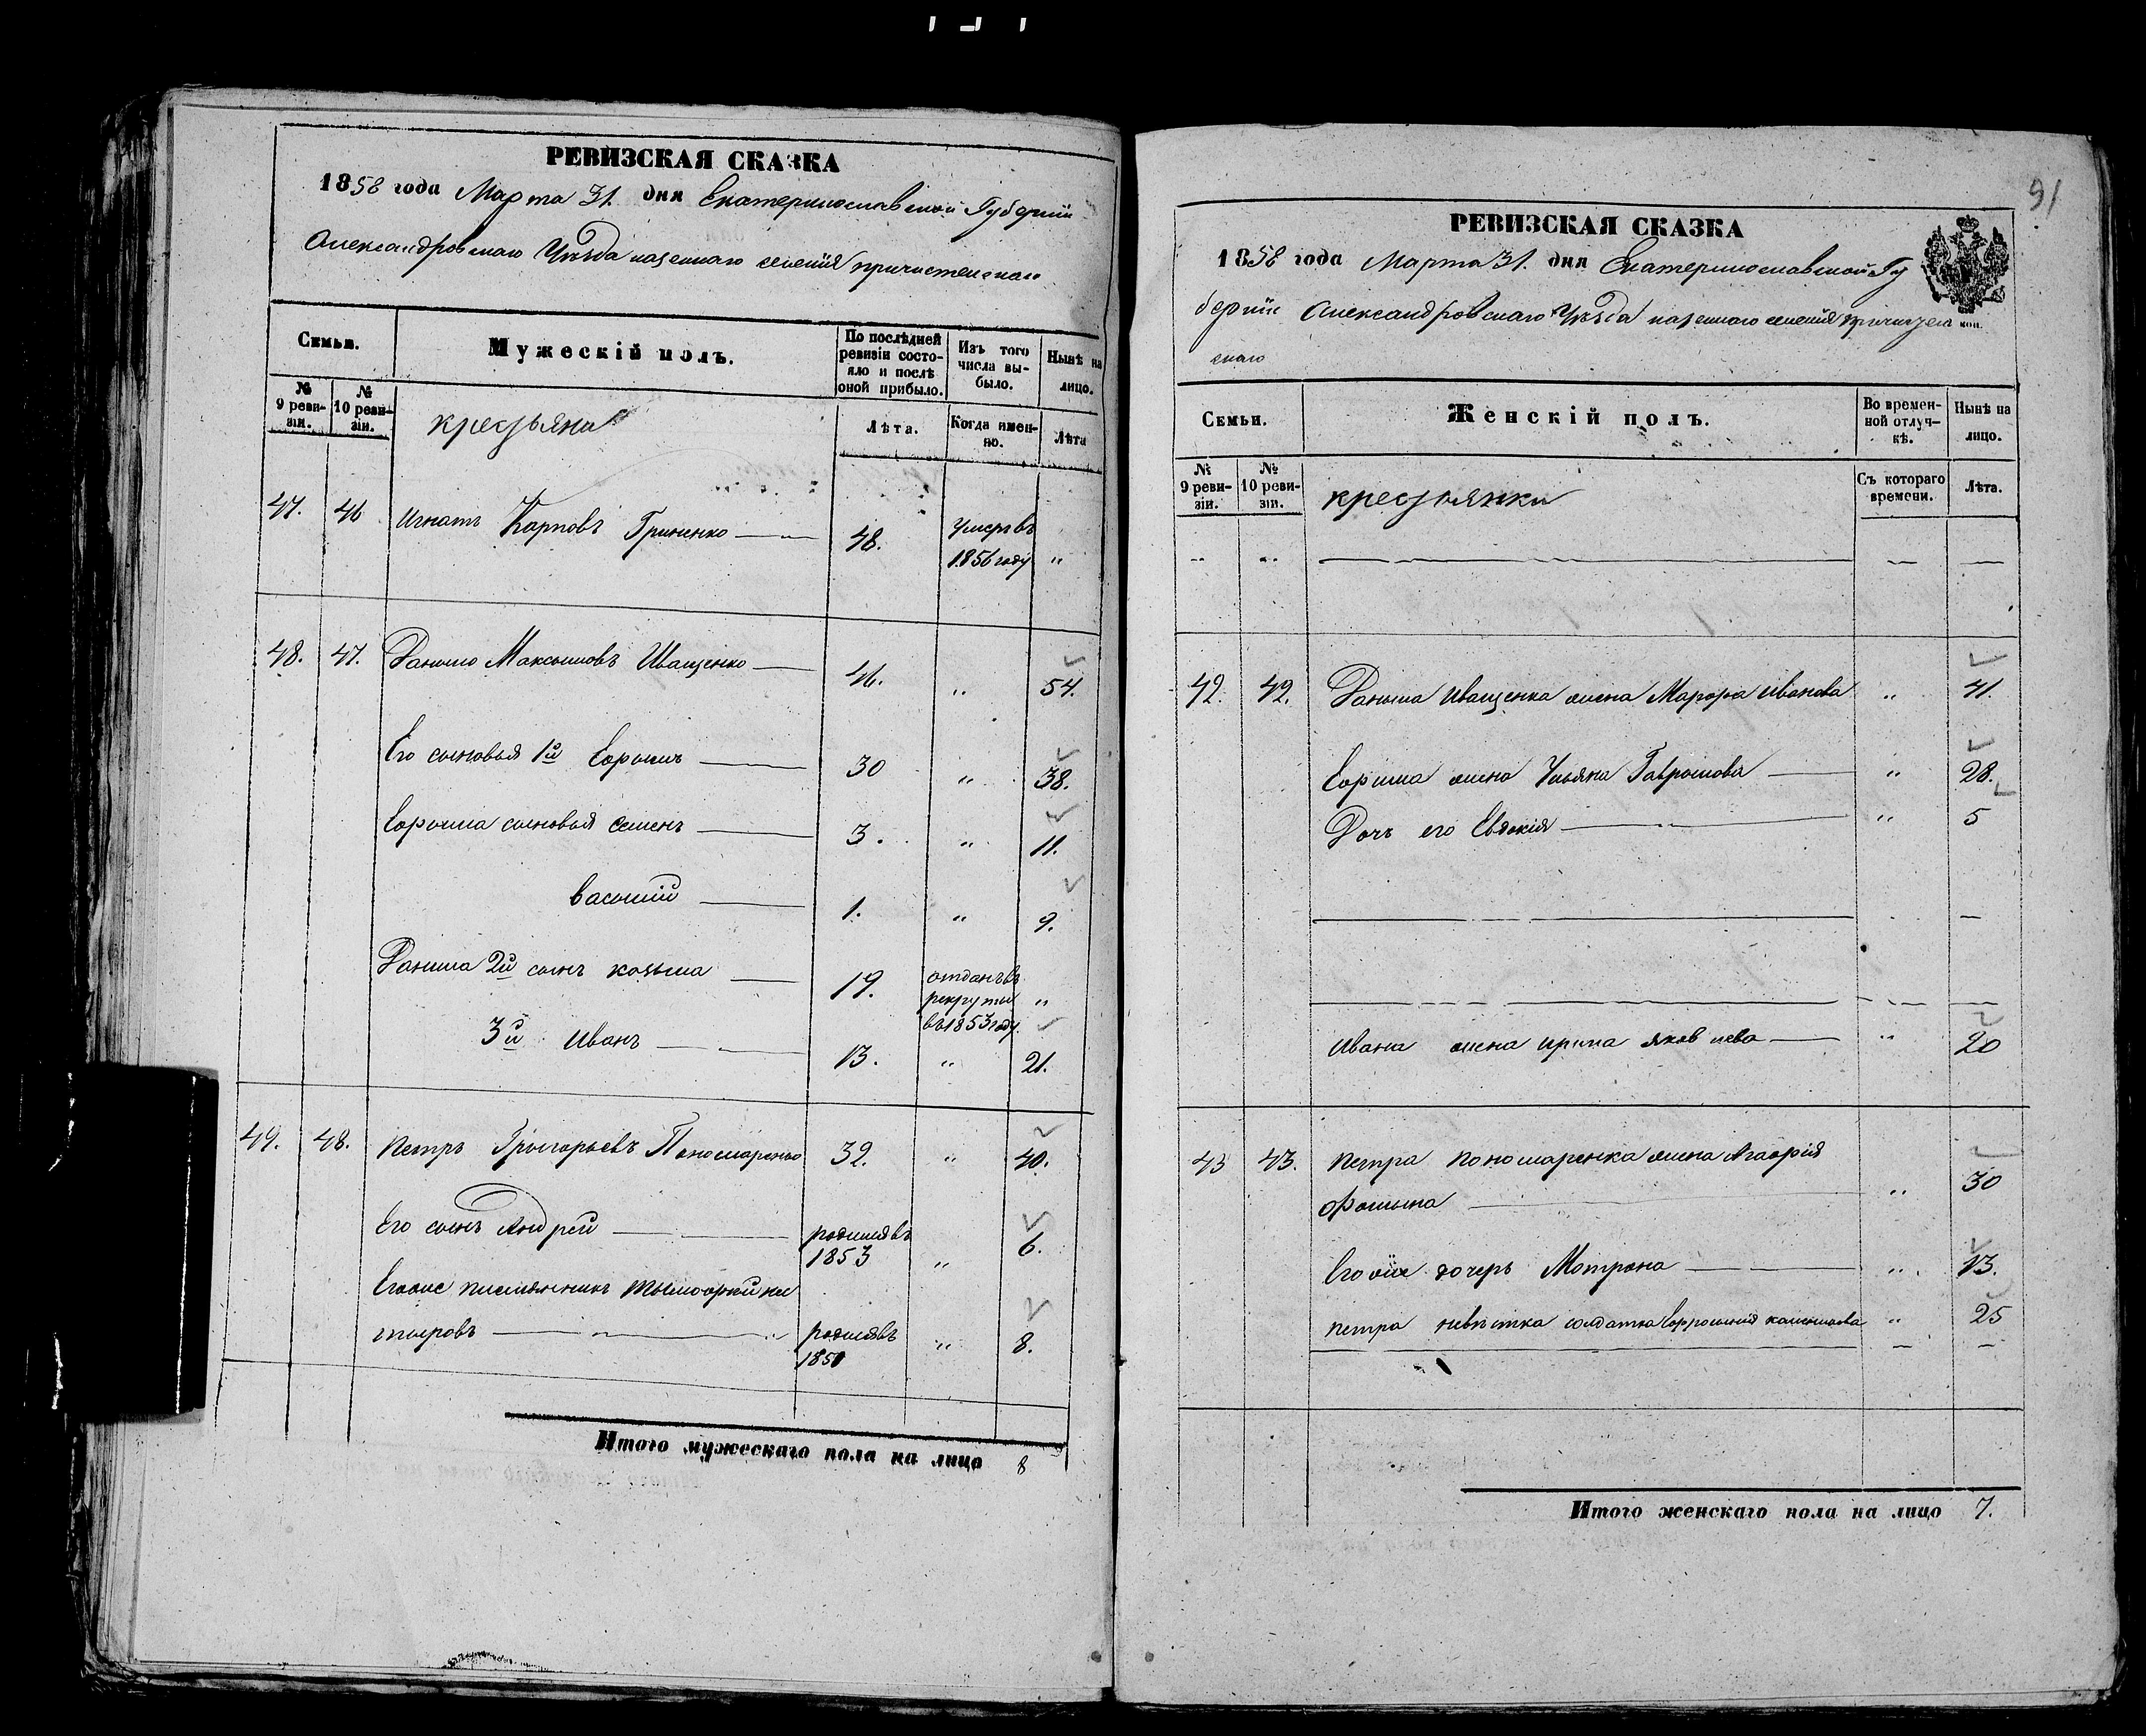 РЕВИЗСКАЯ СКАЗКА
1858 года Марта 31. дня Екатеринославской Губернiи
Александровскаго Уѣзда казеннаго селенiя Пречистенскаго
Семьи.
Мужескiй полъ.
По послѣдней ревизiи состояло и послѣ оной прибыло.
Изъ того числа выбыло.
Нынѣ на лицо.
№ 9 ревизiи.
№ 10 ревизiи.
крестьяна
Лѣта.
Когда именно.
Лѣта
47. 46 Игнатъ Карповъ Гриненко 48. умеръ въ 1856 году "
48. 47. Данило Максимовъ Иващенко 46. " 54.
Его сыновья 1й Ефримъ 30 " 38.
Ефрима сыновья Семенъ 3. " 11.
Василiй 1. " 9.
Данила 2й сынъ козьма 19. отданъ въ рекруты въ 1853 году. "
3й Иванъ 13. " 21.
49. 48. Петръ Григорьевъ Пономаренко 32. " 40.
Его сынъ Андрей родился въ 1853 " 6.
Егоже племянникъ
родился въ 1851 " 8.
Итого мужескаго пола на лицо 8
91
РЕВИЗСКАЯ СКАЗКА
1858 года Марта 31. дня Екатеринославской Гу
бернiи Александровскаго Уѣзда казеннаго селенiя Пречистен
скаго
коп.
Семьи.
Женскiй полъ.
Во временной отлучкѣ.
Нынѣ на лицо.
№ 9 ревизiи.
№ 10 ревизiи.
крестьянки
Съ котораго времени.
Лѣта.
42. 42. Данила Иващенка жена Марфа Иванова " 41.
Ефрима жена Ульяна Гаврилова " 28.
Дочъ его Евдокiя " 5
Ивана жена Ирина Яковлева " 20
43 43. Петра Пономаренка жена Агафiя
Фомина " 30
Егоже дочерь Мотрона " 13.
Петра невѣстка солдатка " 25
Итого женскаго пола на лицо 7.